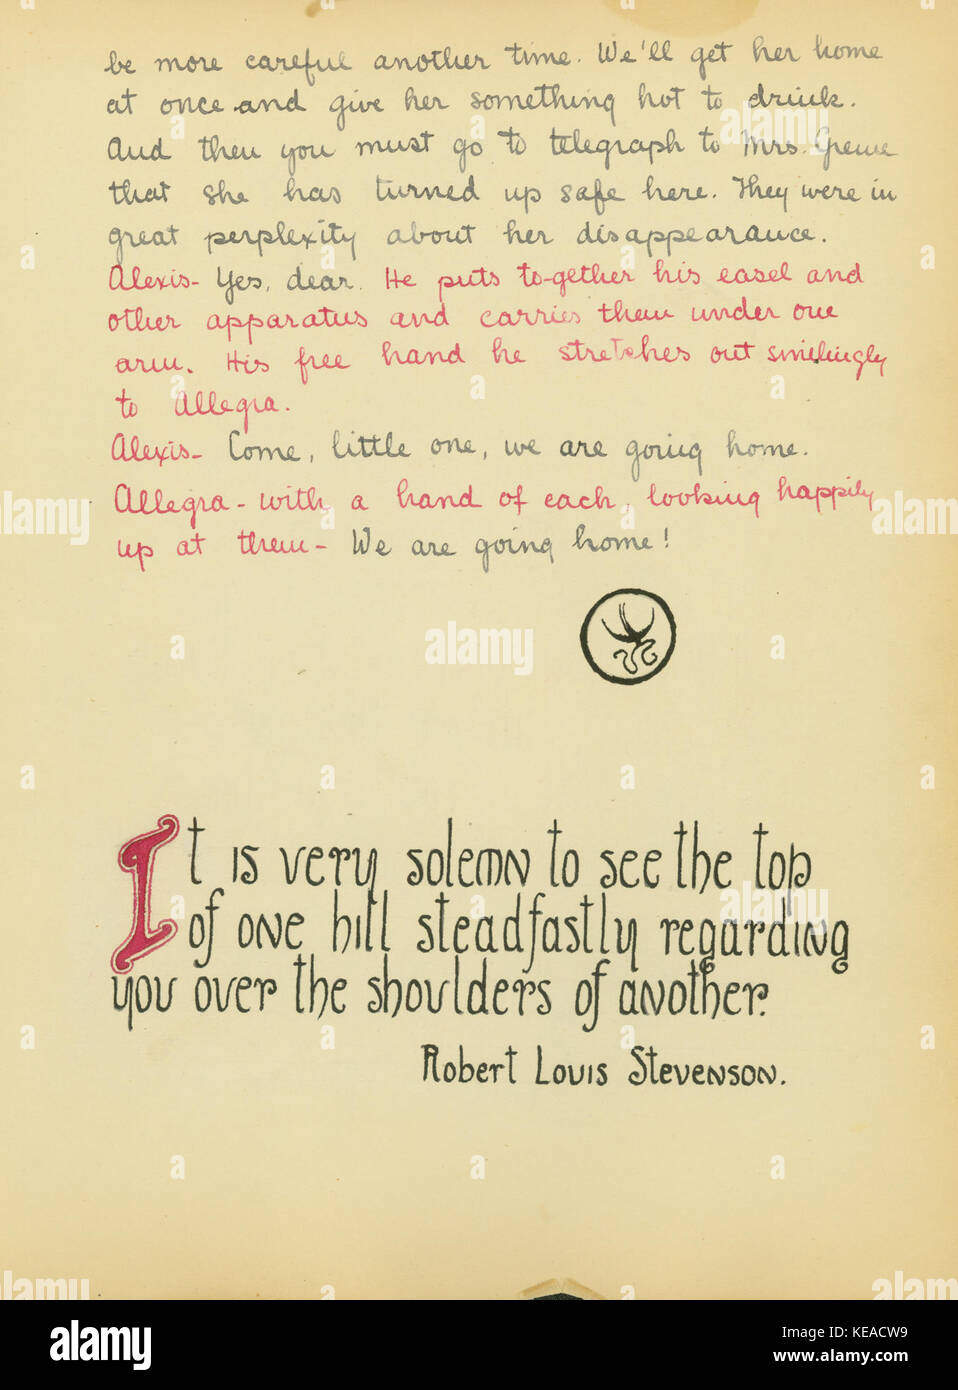 be more careful another time. We'll get her home
at once and give her something hot to drink.
And then you must go to telegraph to Mrs. Greue
that she has turned up safe here. They were in
great perplexity about her disappearance.
Alexis- Yes, dear. He puts to-gether his easel and
other apparatus and carries them under one
arm. His free hand he stretches out smilingly
to Allegra.
Alexis- Come, little one, we are going home.
Allegra - with a hand of each, looking happily
up at them - We are going home!
It is very solemn to see the top
of one hill steadfastly regarding
you over the shoulders of another.
Robert Louis Stevenson.
alamy
Image ID: KEACW9
www.alamy.com